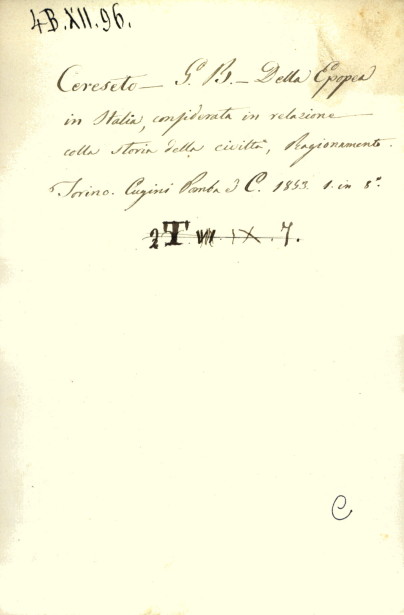 4B.XII.96.
Cereseto - G. B. - Della Epopea
in Italia, considerata in relazione
colla storia della civiltà, Ragionamento.
Torino. Cugini Pomba e C. 1853. 1. in 8.º
2 T VII. IX. 7.
C